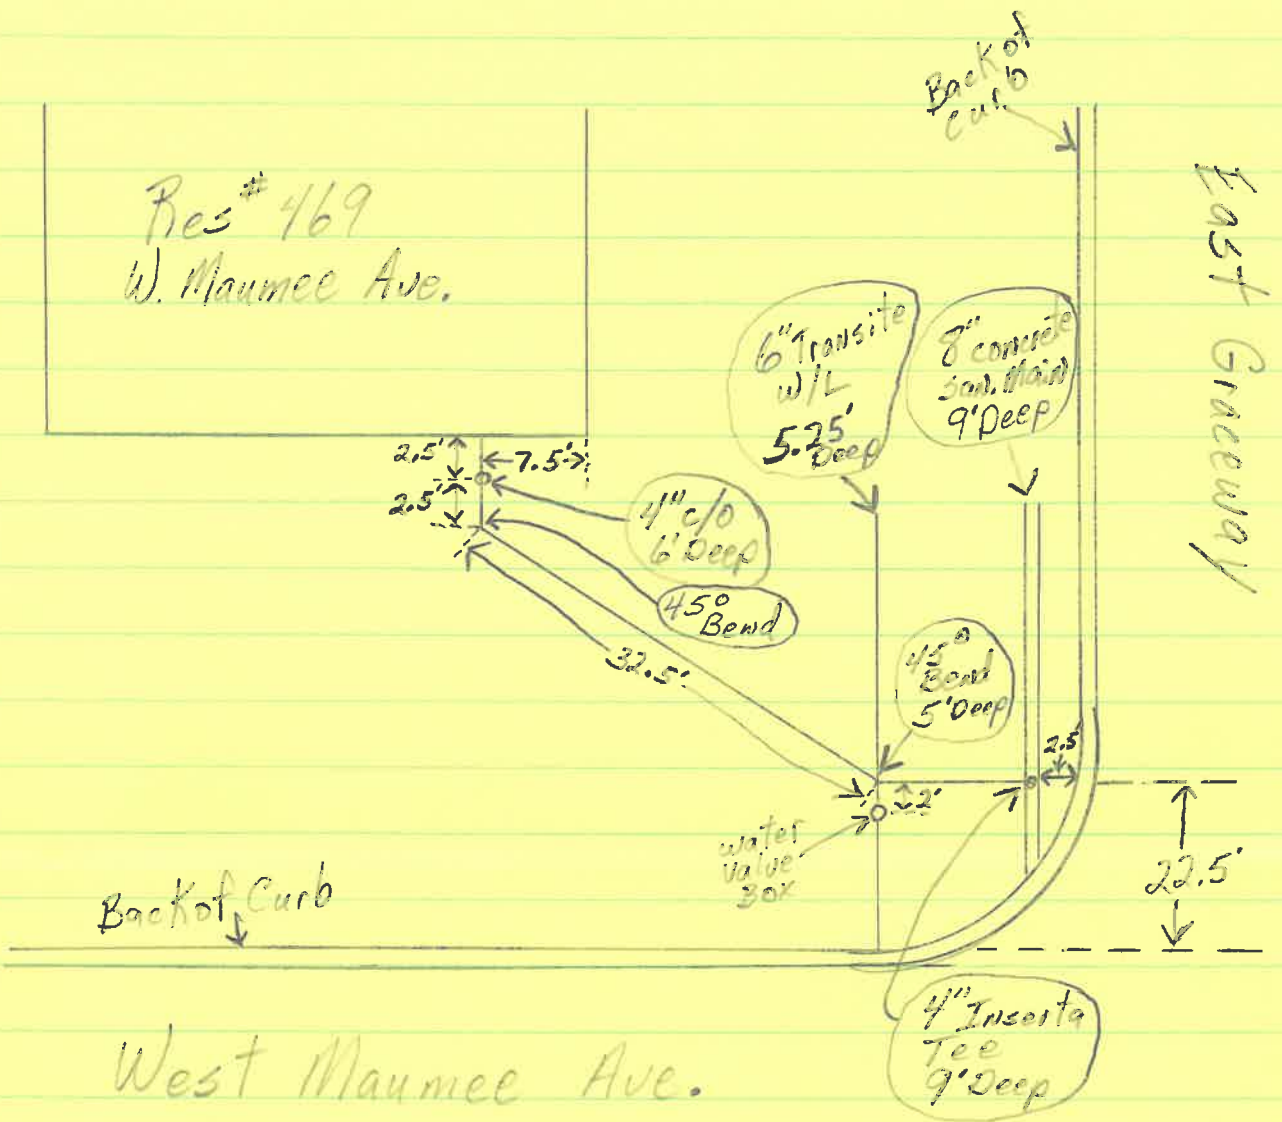 Back of
Curb
Res # 469
W. Maumee Ave.
East Graceway
6" Transite
W/L
5.25'
Deep
8" concrete
San. Main
9' Deep
2.5'
7.5'
2.5'
4" c/o
6' Deep
45°
Bend
32.5'
45°
Bend
5' Deep
2.5'
2'
water
Valve
Box
22.5'
Back of Curb
4" Inserta
Tee
9' Deep
West Maumee Ave.